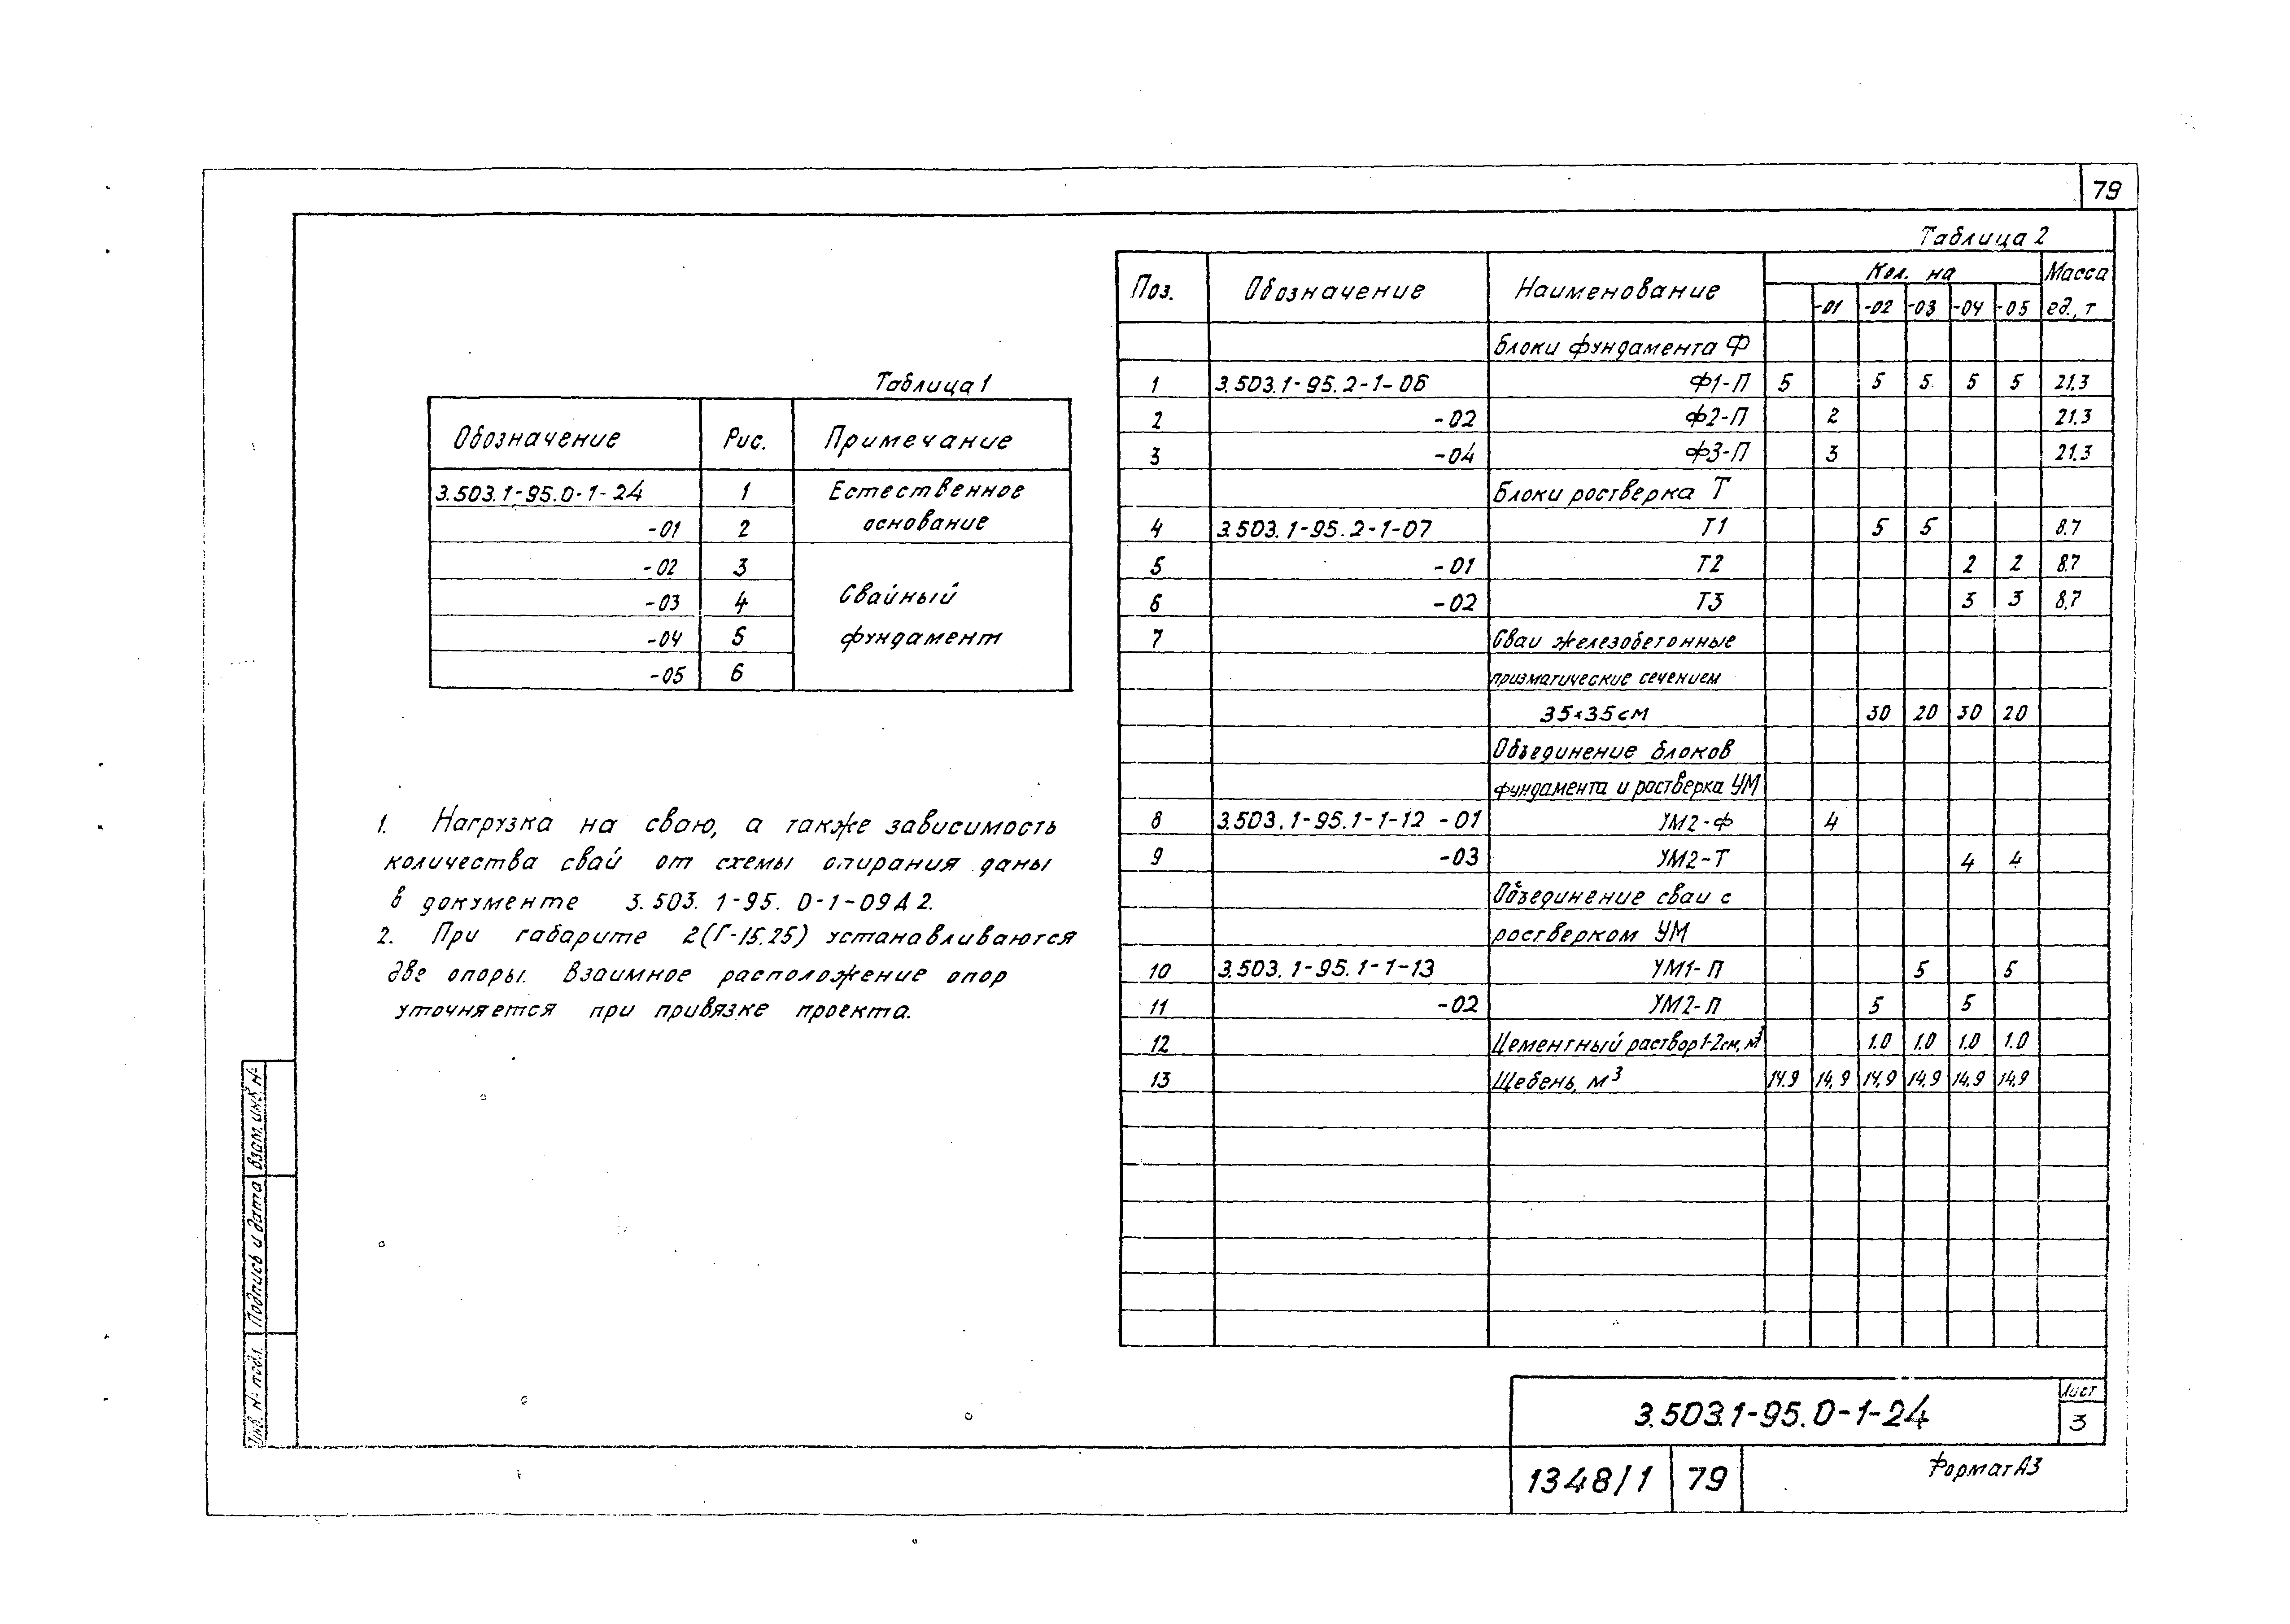 79
Таблица 1
Обозначение Рис. Примечание
3.503.1-95.0-1-24 1 Естественное
-01 2 основание
-02 3
-03 4 Свайный
-04 5 фундамент
-05 6
1. Нагрузка на сваю, а также зависимость
количества свай от схемы опирания даны
в документе 3.503.1-95.0-1-09Д2.
2. При габарите 2(Г-15.25) устанавливаются
две опоры. Взаимное расположение опор
уточняется при привязке проекта.
Таблица 2
Поз. Обозначение Наименование Кол. на Масса
-01 -02 -03 -04 -05 ед., т
Блоки фундамента Ф
1 3.503.1-95.2-1-06 Ф1-П 5 5 5 5 5 21.3
2 -02 Ф2-П 2 21.3
3 -04 Ф3-П 3 21.3
Блоки ростверка Т
4 3.503.1-95.2-1-07 Т1 5 5 8.7
5 -01 Т2 2 2 8.7
6 -02 Т3 3 3 8.7
7 Сваи железобетонные
призматические сечением
35×35см 30 20 30 20
Объединение блоков
фундамента и ростверка УМ
8 3.503.1-95.1-1-12 -01 УМ2-Ф 4
9 -03 УМ2-Т 4 4
Объединение сваи с
ростверком УМ
10 3.503.1-95.1-1-13 УМ1-П 5 5
11 -02 УМ2-П 5 5
12 Цементный раствор 1-2см, м³ 1.0 1.0 1.0 1.0
13 Щебень, м³ 14.9 14,9 14,9 14,9 14,9 14,9
Взам. инв. №
Подпись и дата
Инв. № подл.
3.503.1-95.0-1-24
Лист
3
1348/1 79
Формат А3